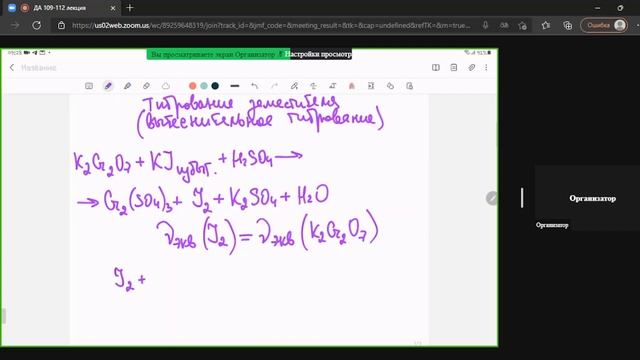 ДА 109-112 лекция
https://us02web.zoom.us/wc/89259648319/join?track_id=&jmf_code=&meeting_result=&tk=&cap=undefined&refTK=&m=true...
Ошибка
Вы просматриваете экран Организатор
Настройки просмотр
Название
Титрование заместителя
(вытеснительное титрование)
K₂Cr₂O₇ + KJ избыт. + H₂SO₄ →
→ Cr₂(SO₄)₃ + J₂ + K₂SO₄ + H₂O
νэкв (J₂) = νэкв (K₂Cr₂O₇)
J₂ +
Организатор
Организатор